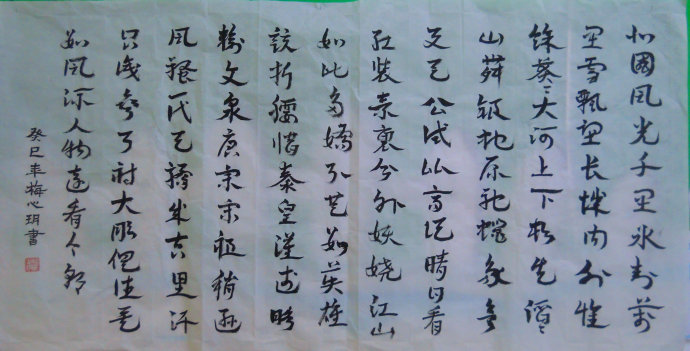 北國風光千里冰封萬
里雪飄望长城内外惟
馀莽々大河上下顿失滔々
山舞银蛇原驰蜡象欲
与天公试比高须晴日看
红装素裹分外妖娆江山
如此多嬌引无数英雄
競折腰惜秦皇漢武略
输文采唐宗宋祖稍逊
風骚一代天骄成吉思汗
只识弯弓射大雕俱往矣
数風流人物还看今朝
癸巳年梅心玥書